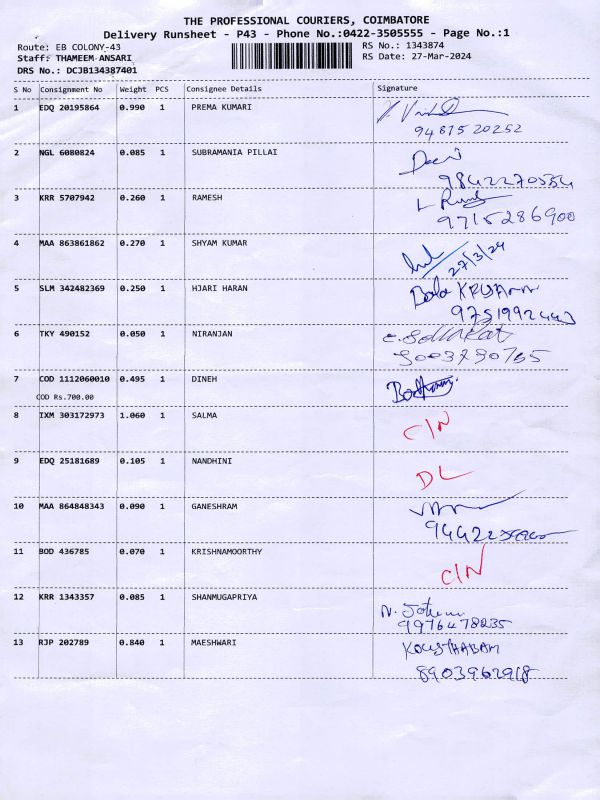 THE PROFESSIONAL COURIERS, COIMBATORE
Delivery Runsheet - P43 - Phone No.:0422-3505555 - Page No.:1
Route: EB COLONY-43 RS No.: 1343874
Staff: THAMEEM ANSARI RS Date: 27-Mar-2024
DRS No.: DCJB134387401
S No Consignment No Weight PCS Consignee Details Signature
1 EDQ 20195864 0.990 1 PREMA KUMARI
9487520252
2 NGL 6080824 0.085 1 SUBRAMANIA PILLAI
9842270554
3 KRR 5707942 0.260 1 RAMESH
9715286900
4 MAA 863861862 0.270 1 SHYAM KUMAR
27/3/24
5 SLM 342482369 0.250 1 HJARI HARAN
6 TKY 490152 0.050 1 NIRANJAN
7 COD 1112060010 0.495 1 DINEH
COD Rs.700.00
8 IXM 303172973 1.060 1 SALMA C/N
9 EDQ 25181689 0.105 1 NANDHINI DL
10 MAA 864848343 0.090 1 GANESHRAM
11 BOD 436785 0.070 1 KRISHNAMOORTHY C/N
12 KRR 1343357 0.085 1 SHANMUGAPRIYA
9976478235
13 RJP 202789 0.840 1 MAESHWARI KOUSTHABAM
8903962918